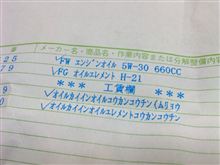 メーカー名・商品名・作業内容または分解整備内容
25 √FW エンジンオイル 5W-30 660CC
79 √FG オイルエレメント H-21
*** 工賃欄 ***
√オイルカイインオイルコウカンコウチン(ムリョウ
√オイルカイインオイルエレメントコウカンコウチン